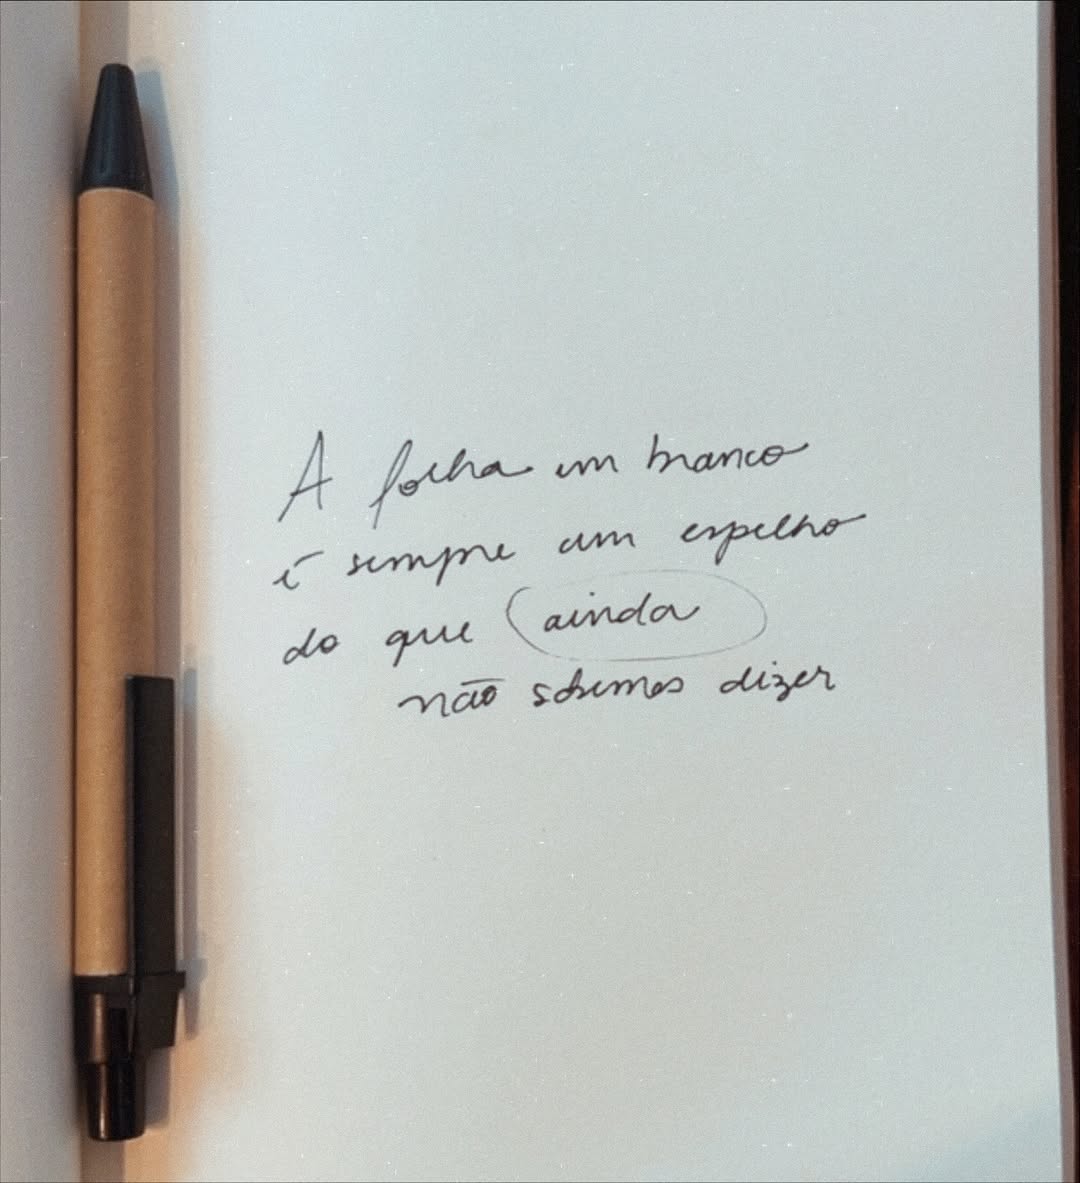 A folha em branco
é sempre um espelho
do que ainda
não sabemos dizer